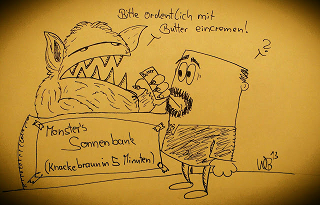 Bitte ordentlich mit
Butter eincremen!
?
Monster's
Sonnenbank
(Knackebraun in 5 Minuten)